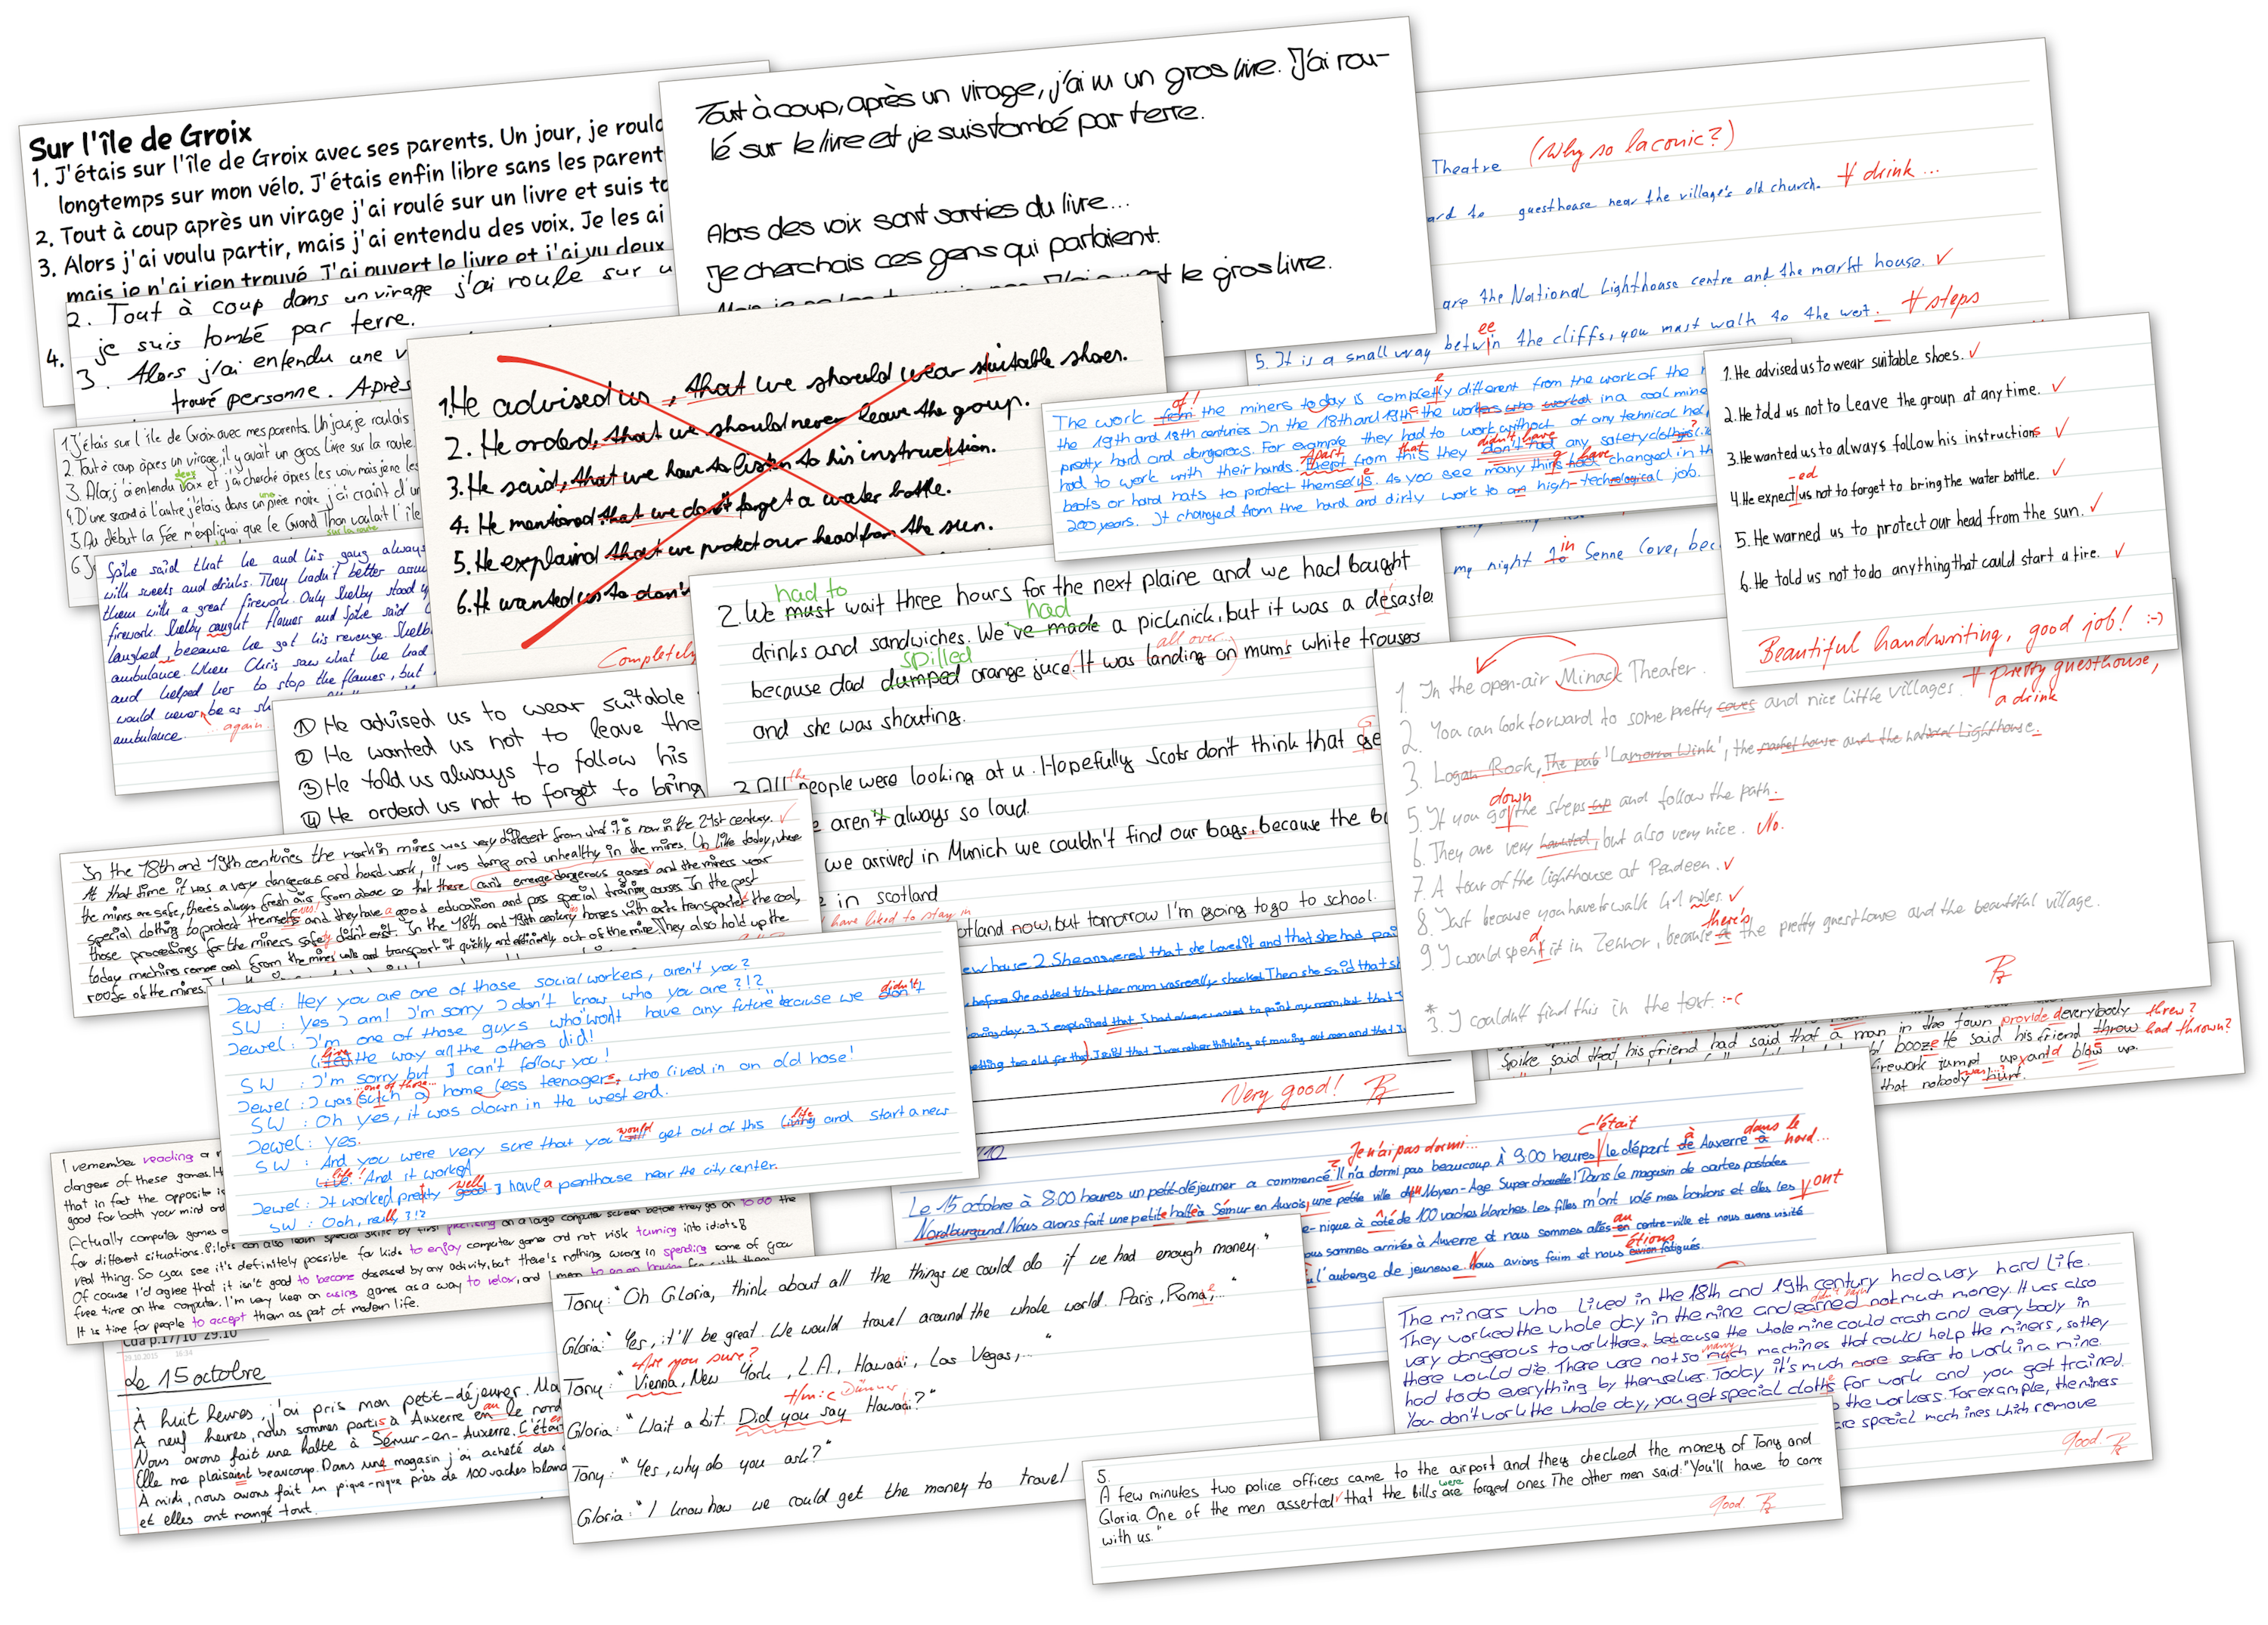 Sur l'île de Groix
1. J'étais sur l'île de Groix avec ses parents. Un jour, je roula
longtemps sur mon vélo. J'étais enfin libre sans les parent
2. Tout à coup après un virage j'ai roulé sur un livre et suis to
3. Alors j'ai voulu partir, mais j'ai entendu des voix. Je les ai
mais je n'ai rien trouvé. J'ai ouvert le livre et j'ai vu deux
4.
2. Tout à coup dans un virage j'ai roulé sur u
je suis tombé par terre.
3. Alors j'ai entendu une v
trouvé personne. Après
Tout à coup, après un virage, j'ai vu un gros livre. J'ai rou-
lé sur le livre et je suis tombé par terre.
Alors des voix sont sorties du livre...
Je cherchais ces gens qui parlaient.
le gros livre.
Theatre (Why so laconic?)
guesthouse near the village's old church. # drink ...
are the National Lighthouse centre and the markt house. ✓
5. It is a small way betwin the cliffs, you must walk to the west. # steps
ee
1. He advised us, that we should wear suitable shoes.
2. He orderd, that we should never leave the group.
3. He said, that we have to listen to his instrucktion.
4. He mentioned that we don't forget a water bottle.
5. He explaind that we protect our head from the sun.
6. He wanted us to don't
Completely
The work from the miners today is completly different from the work of the
of!
the 19th and 18th centuries. In the 18th and 19th c the workers who worked in a coal mine
pretty hard and dangerous. For example they had to work without of any technical hel
had to work with their hands. Exept from this they don't had any safety
Apart that didn't have
boots or hard hats to protect themselvs. As you see many things have changed in th
200 years. It changed from the hard and dirty work to an high-technological job.
my night to Senne Cove, bec
in
1. He advised us to wear suitable shoes. ✓
2. He told us not to leave the group at any time. ✓
3. He wanted us to always follow his instructions ✓
-ed
4. He expect us not to forget to bring the water bottle. ✓
5. He warned us to protect our head from the sun. ✓
6. He told us not to do anything that could start a fire. ✓
Beautiful handwriting, good job! :-)
1 J'étais sur l'île de Groix avec mes parents. Un jour, je roulais
2. Tout à coup après un virage, il y avait un gros livre sur la route.
3. Alors j'ai entendu voix et j'ai cherché après les voix mais je ne les
deux
4. D'une second à l'autre j'étais dans un pière noire j'ai craint d'un
une
5. Au début la fée m'expliquai, que le Grand Thon voulait l'île
sur la route
6. J
Spike said that he and his gang always
with sweets and drinks. They hadn't better
them with a great firework. Only Shelby stood
firework. Shelby caught flames and Spike said
laughed, because he got his revenge. Shelb
ambulance. When Chris saw what he had
and helped her to stop the flames, but
would never be as sh
again
ambulance.
① He advised us to wear suitable
② He wanted us not to leave the
③ He told us always to follow his
④ He orderd us not to forget to bring
2. We must wait three hours for the next plaine and we had bought
had to
drinks and sandwiches. We've made a picknick, but it was a desaste
had
because dad dumped orange juce. It was landing on mum's white trouses
spilled all over
and she was shouting.
3. All people were looking at u. Hopefully Scots don't think that ge
the
aren't always so loud.
we arrived in Munich we couldn't find our bags, because the b
in scotland
have liked to stay in
otland now, but tomorrow I'm going to go to school.
ew house 2. She answered that she loved it and that she had pai
before. She added that her mum was really shocked. Then she said that s
Very good!
1 In the open-air Minack Theater.
2. You can look forward to some pretty coves and nice little villages. # pretty guesthouse,
a drink
3. Logan Rock, The pub 'Lamorna Wink', the market house and the national Lighthouse.
5. If you go the steps up and follow the path.
down
6. They are very haunted, but also very nice. No.
7. A tour of the lighthouse at Pendeen. ✓
8. Just because you have to walk 4.1 miles. ✓
9. I would spent it in Zennor, because the pretty guesthouse and the beautiful village.
d there's
* 3. I couldn't find this in the text. :-(
Spike said that his friend had said that a man in the town provide everybody threw?
his friend throw had thrown?
firework jumpt up and blow up.
that nobody hurt.
In the 18th and 19th centuries the work in mines was very different from what it is now in the 21st century. ✓
At that time it was a very dangerous and hard work, it was damp and unhealthy in the mines. Un like today, where
the mines are safe, there's always fresh air from above so that there can't emerge dangerous gases and the miners wear
special clothing to protect themselfs and they have a good education and pass special training courses. In the past
those proceedings for the miners safety didn't exist. In the 18th and 19th century horses with carts transported the coal,
today machines remove coal from the mines walls and transport it quickly and efficiently out of the mine. They also hold up the
roofs of the mines.
Jewel: Hey you are one of those social workers, aren't you?
SW : Yes I am! I'm sorry I don't know who you are?!?
Jewel: I'm one of those guys who "won't have any future" because we don't
didn't
the way all the others did!
live
SW : I'm sorry but I can't follow you!
...one of those...
Jewel: I was (sutch a) home less teenagers, who lived in an old hose!
SW : Oh yes, it was down in the west end.
Jewel: Yes.
SW : And you were very sure that you will get out of this living and start a new
would life
life! And it worked!
Jewel: It worked pretty good I have a penthouse near the city center.
well
SW : Ooh, really ?!?
I remember reading a
dangers of these games. H
that in fact the opposite is
good for both your mind and
Actually computer games
for different situations. Pilots can also learn special skills by first practising on a large computer screen before they go on to do the
real thing. So you see it's definitely possible for kids to enjoy computer games and not risk turning into idiots
Of course I'd agree that it isn't good to become obsessed by any activity, but there's nothing wrong in spending some of your
free time on the computer. I'm very keen on using games as a way to relax, and I mean to go on having fun with them
It is time for people to accept them as part of modern life.
Cda p.17/10 29.10
29.10.2015 16:34
Le 15 octobre
À huit heures, j'ai pris mon petit-déjeuner. Ma
À neuf heures, nous sommes partis à Auxerre en le nord
au
Nous avons fait une halte à Sémur-en-Auxerre. C'étai
Elle me plaisaint beaucoup. Dans une magasin j'ai acheté des
À midi, nous avons fait un pique-nique près de 100 vaches blanc
et elles ont mangé tout.
Je n'ai pas dormi... c'était dans le
Le 15 octobre à 8:00 heures un petit-déjeuner a commencé. Il n'a dormi pas beaucoup. À 9:00 heures le départ de Auxerre à nord...
Nordburgund. Nous avons fait une petite halte à Sémur en Auxois, une petite ville du Moyen-Age. Super chouette! Dans le magasin de cartes postales
e-nique à coté de 100 vaches blanches. Les filles m'ont volé mes bonbons et elles les ont
ous sommes arrivés à Auxerre et nous sommes allés en centre-ville et nous avons visité
au
étions
l'auberge de jeunesse. Nous avions faim et nous avion fatigués.
Tony: "Oh Gloria, think about all the things we could do if we had enough money."
Gloria: "Yes, it'll be great. We would travel around the whole world. Paris, Roma,..."
Are you sure?
Tony: "Vienna, New York, L.A., Hawaii, Las Vegas,..."
Gloria: "Wait a bit. Did you say Hawaii?"
Tony: "Yes, why do you ask?"
Gloria: "I know how we could get the money to travel
The miners who lived in the 18th and 19th century had a very hard life.
They worked the whole day in the mine and earned not much money. It was also
didn't earn
very dangerous to work there, because the whole mine could crash and every body in
there would die. There were not so much machines that could help the miners, so they
many
had to do everything by themselves. Today it's much more safer to work in a mine.
You don't work the whole day, you get special cloths for work and you get trained.
the workers. For example, the miners
are special machines which remove
good.
5.
A few minutes two police officers came to the airport and they checked the money of Tony and
Gloria. One of the men asserted that the bills are forged ones. The other men said: "You'll have to come
were
with us."
good.